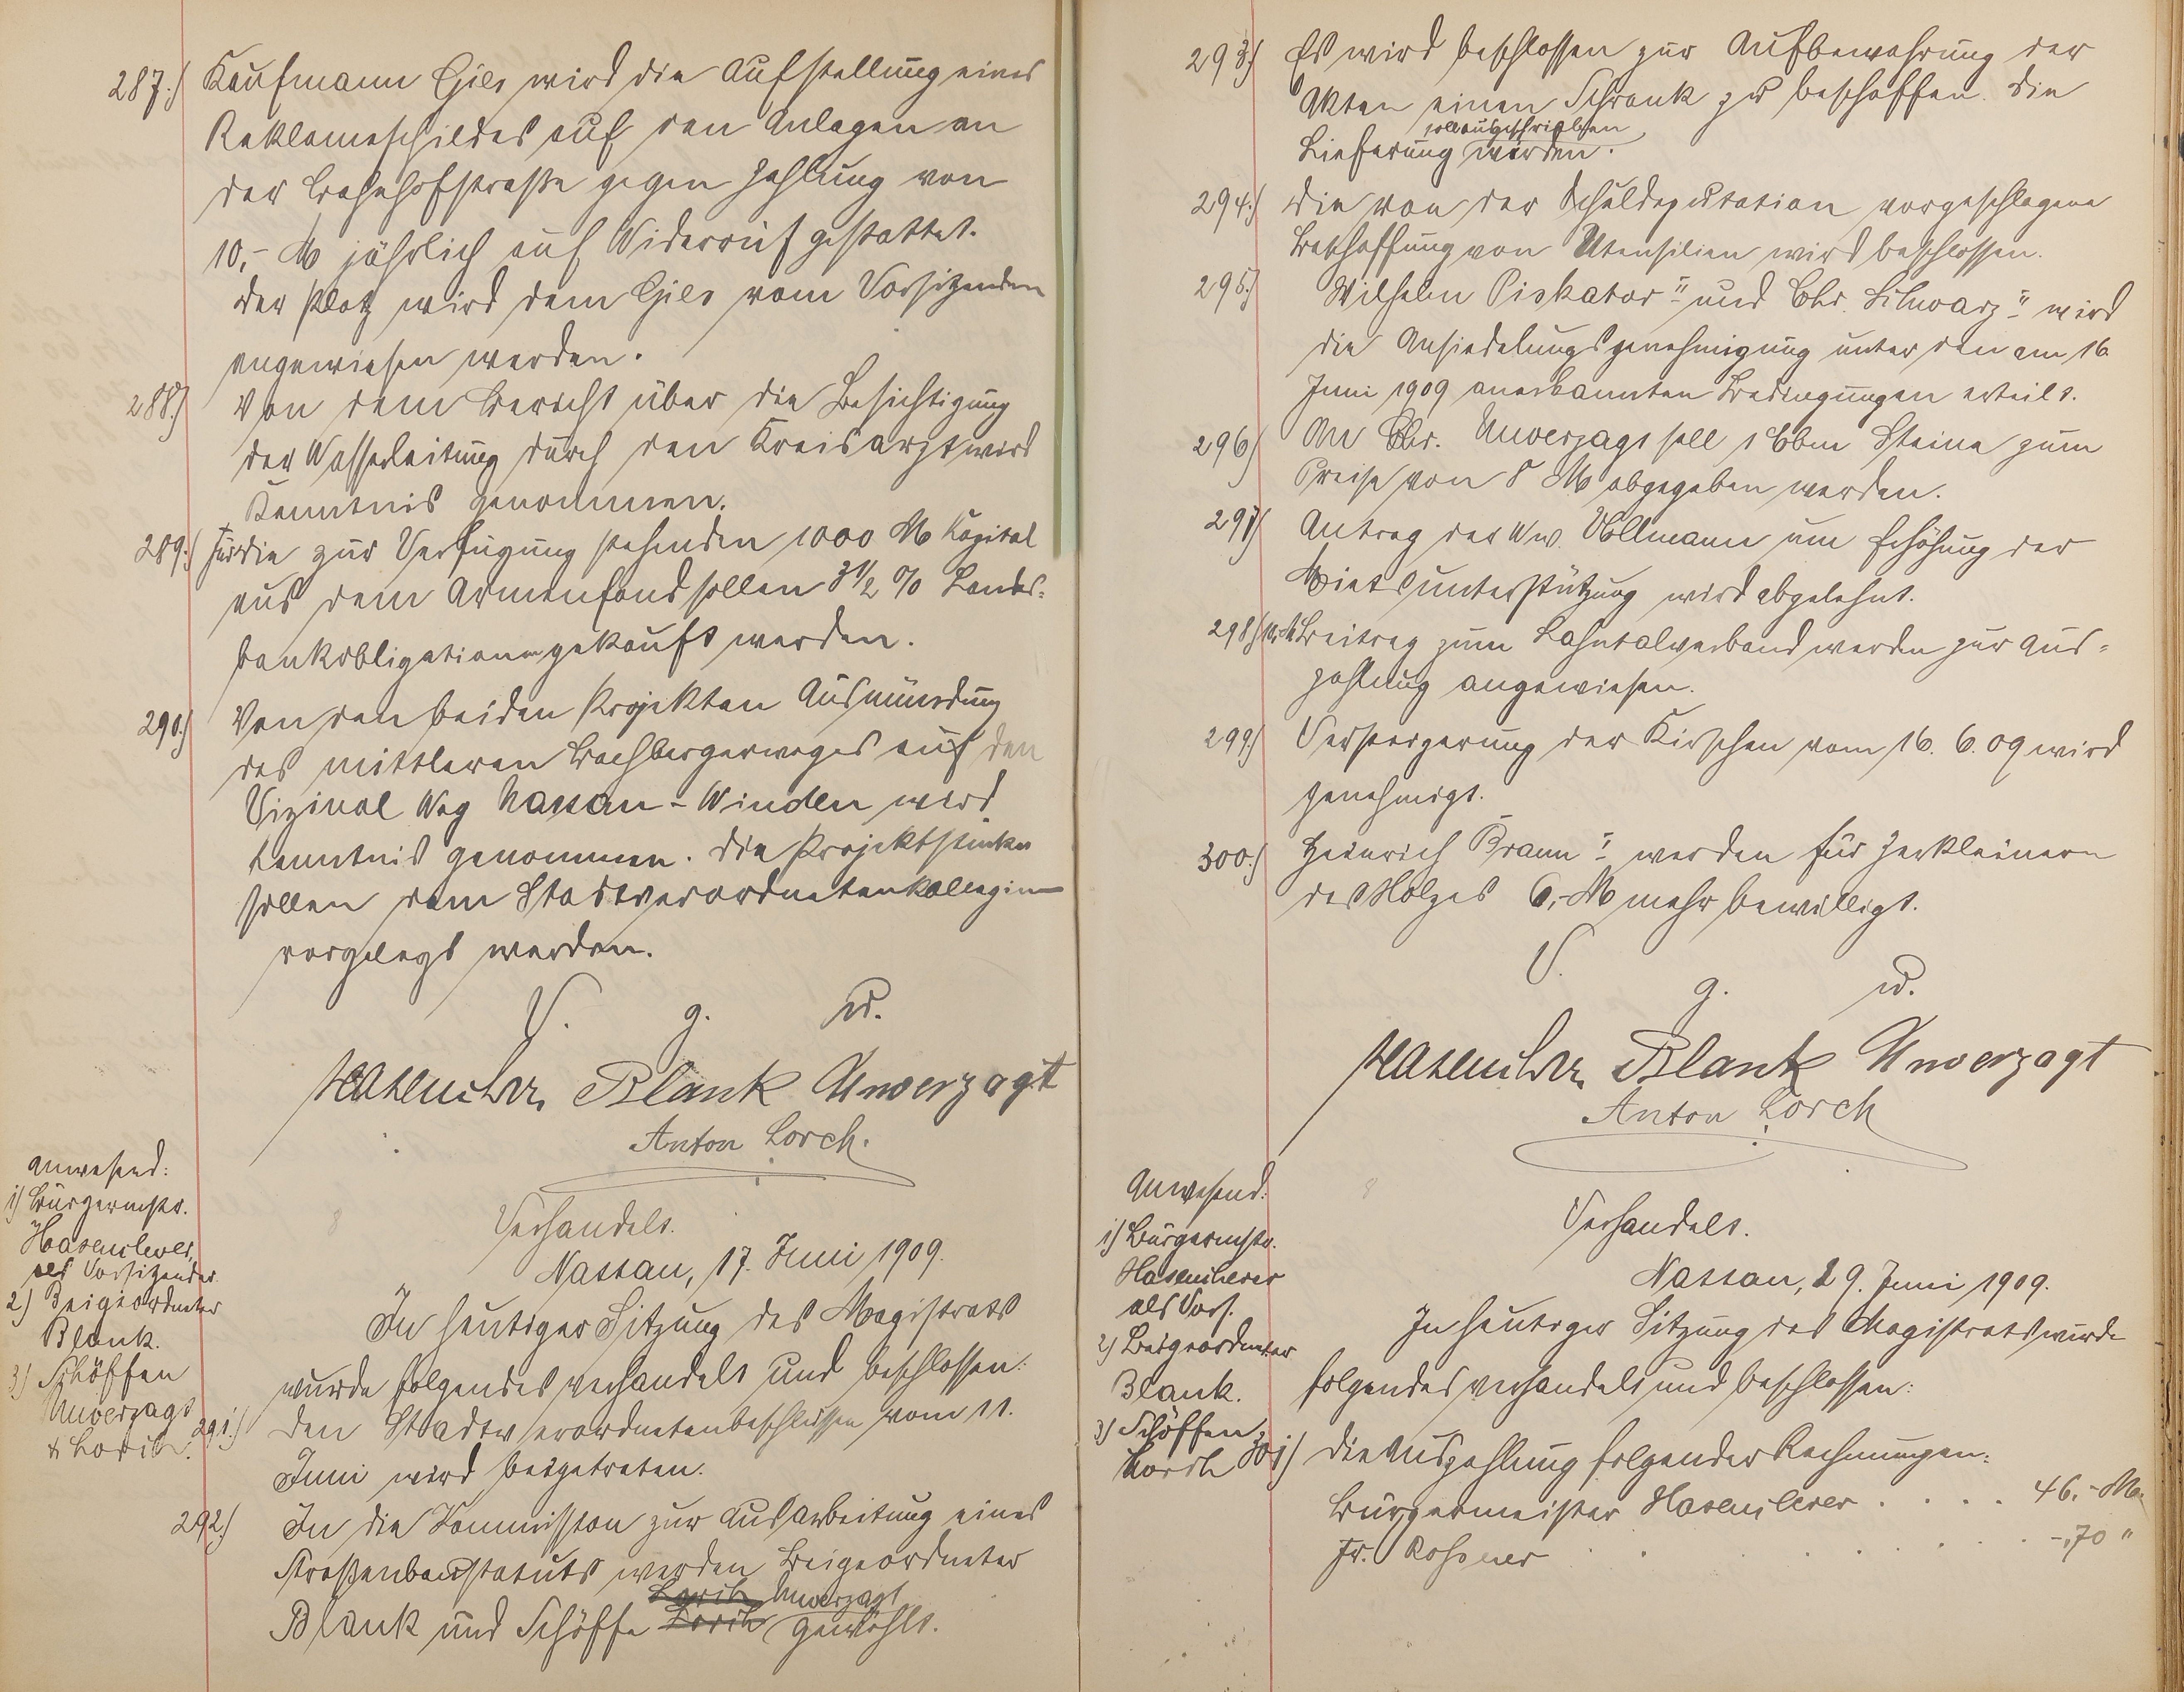 287.) Kaufmann Gils wird die Aufstellung eines
Reklameschildes auf den Anlagen an
der Bahnhofstraße gegen Zahlung von
10,- M jährlich auf Widerruf gestattet.
Der Platz wird dem Gils vom Vorsitzenden
angewiesen werden.
288.) Von dem Bericht über die Besichtigung
der Wasserleitung durch den Kreisarzt wird
Kenntnis genommen.
289.) Für die zur Verfügung stehenden 1000 M Kapital
aus dem Armenfond sollen 3 1/2 % Landes-
bankobligationen gekauft werden.
290.) Von den beiden Projekten Ausmündung
des mittleren Bachbergerweges auf den
Vizinal Weg Nassau - Winden wird
Kenntnis genommen. Die Projektstücke
sollen dem Stadtverordnetenkollegium
vorgelegt werden.
V. g. u.
Hasenclever Blank Unverzagt
Anton Lorch.
Anwesend:
1) Bürgermstr.
Hasenclever,
als Vorsitzender
2) Beigeordneter
Blank.
3) Schöffen
Unverzagt
& Lorch.
Verhandelt.
Nassau, 17. Juni 1909.
In heutiger Sitzung des Magistrats
wurde folgendes verhandelt und beschlossen:
291.) Den Stadtverordnetenbeschlüssen vom 11.
Juni wird beigetreten.
292.) In die Kommission zur Ausarbeitung eines
Straßenbaustatuts werden Beigeordneter
Lorch Unverzagt
Blank und Schöffe Lorch gewählt.
293.) Es wird beschlossen zur Aufbewahrung der
Akten einen Schrank zu beschaffen. Die
soll ausgeschrieben
Lieferung werden.
294.) Die von der Schuldeputation vorgeschlagene
Beschaffung von Utensilien wird beschlossen.
295.) Wilhelm Piskator II und Chr. Schwarz II wird
die Ansiedelungsgenehmigung unter den am 16.
Juni 1909 anerkannten Bedingungen erteilt.
296.) An Chr. Unverzagt soll 1 Cbm Steine zum
Preise von 8 M abgegeben werden.
297.) Antrag der Ww. Vollmann um Erhöhung der
Mietsunterstützung wird abgelehnt.
298.) 10 M Beitrag zum Lahntalverband werden zur Aus-
zahlung angewiesen.
299.) Versteigerung der Kirschen vom 16. 6. 09 wird
genehmigt.
300.) Heinrich Braun I werden für Zerkleinern
des Holzes 6,- M mehr bewilligt.
V. g. u.
Hasenclever Blank Unverzagt
Anton Lorch
Anwesend:
1) Bürgermstr.
Hasenclever
als Vors.
2) Beigeordneter
Blank.
3) Schöffen
Lorch
Verhandelt.
Nassau, 29. Juni 1909.
In heutiger Sitzung des Magistrats wurde
folgendes verhandelt und beschlossen:
301) Die Auszahlung folgender Rechnungen:
Bürgermeister Hasenclever . . . . 46.- M.
Fr. Roßner . . . . . . . -,70 "